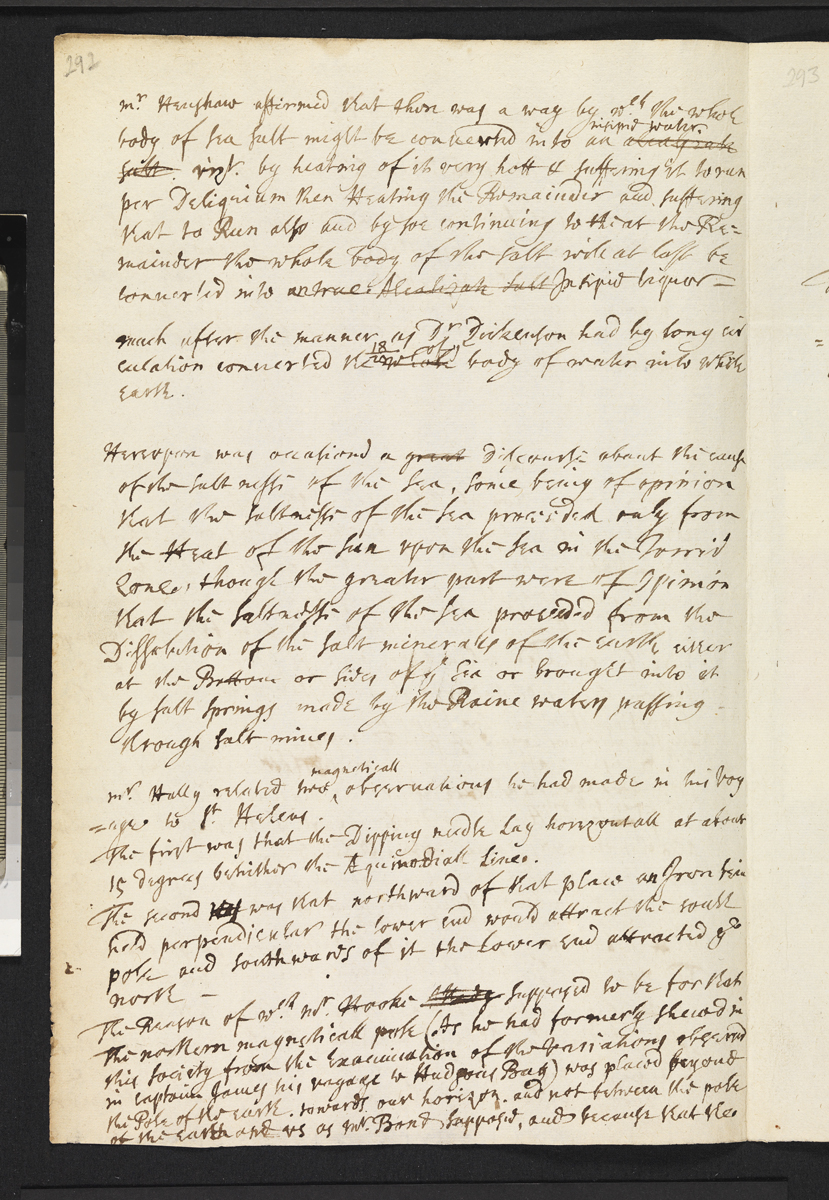 292
293
mr Henshaw affirmed that there was a way by wch the whole
body of sea salt might be converted into an alcalizate insipid water.
salt. vizt. by heating of it very hott & suffering it to run
per Deliquium then Heating the Remainder and suffering
that to Run also and by soe continuing to Heat the Re=
mainder the whole body of the salt will at last be
converted into an true Alcalizate salt Insipid liquor =
much after the manner as Dr Dickenson had by long cir
culation converted the whole 18/20 of a body of water into white
earth.
Hereupon was occasiond a great Discourse about the cause
of the saltnesse of the sea, some being of opinion
that the saltnesse of the sea proceeded only from
the Heat of the sun upon the sea in the Torrid
Zone, though the greater part were of Opinion
that the saltnesse of the sea proceeded from the
Dissolution of the salt mineralls of the earth either
at the Bottom or sides of ye sea or brought into it
by salt springs made by the Raine waters passing
through salt mines.
mr. Hally related two magneticall observations he had made in his voy
=age to St Helens.
The first was that the Dipping needle lay horizontall at about
15 degrees behither the Aequinoctiall Line.
The second was that northward of that place an Iron being
held perpendicular the lower end would attract the south
pole and southwards of it the lower end attracted ye
north -
The Reason of wch mr. Hooke supposed to be for that
the northern magneticall pole (As he had formerly shewd in
this society from the Examination of the variations observd
in captain James his voyage to Hudsons Bay) was placed beyond
the Pole of the earth. towards our horizon. and not between the pole
of the Earth and us as mr. Bond supposed, and because that the